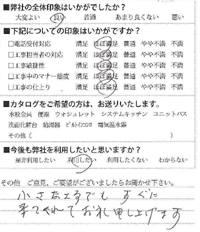 ■弊社の全体印象はいかがでしたか？
大変よい 良い 普通 あまり良くない 悪い
■下記についての印象はいかがですか？
□電話受付対応 満足 ほぼ満足 普通 やや不満 不満
□工事担当者の対応 満足 ほぼ満足 普通 やや不満 不満
□工事確認性 満足 ほぼ満足 普通 やや不満 不満
□工事中のマナー・態度 満足 ほぼ満足 普通 やや不満 不満
□工事の仕上り 満足 ほぼ満足 普通 やや不満 不満
■カタログをご希望の方は、お送りいたします。
水栓金具 便器 ウォシュレット システムキッチン ユニットバス
洗面化粧台 給湯器 ビルトインコンロ 電気温水器
その他（ ）
■今後も弊社を利用したいと思いますか？
是非利用したい 利用したい 利用したくない わからない
その他 ご意見、ご要望がございましたらお聞かせ下さい。
小さな工事でもすぐに
来てくれてお礼申し上げます